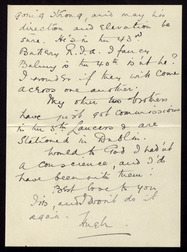 going strong, and may his
direction and elevation be
sure. He's in the 43rd
Battery R.F.A. I fancy
is in the 40th is it he?
I wonder if they will come
across one another.
My other two brothers
have just got commissions
in the 5th Lancers & are
stationed in Dublin.
I wish to God I hadn't
a conscience, and I'd
have been with them.
Best love to you
and don't do it
again. Hugh.